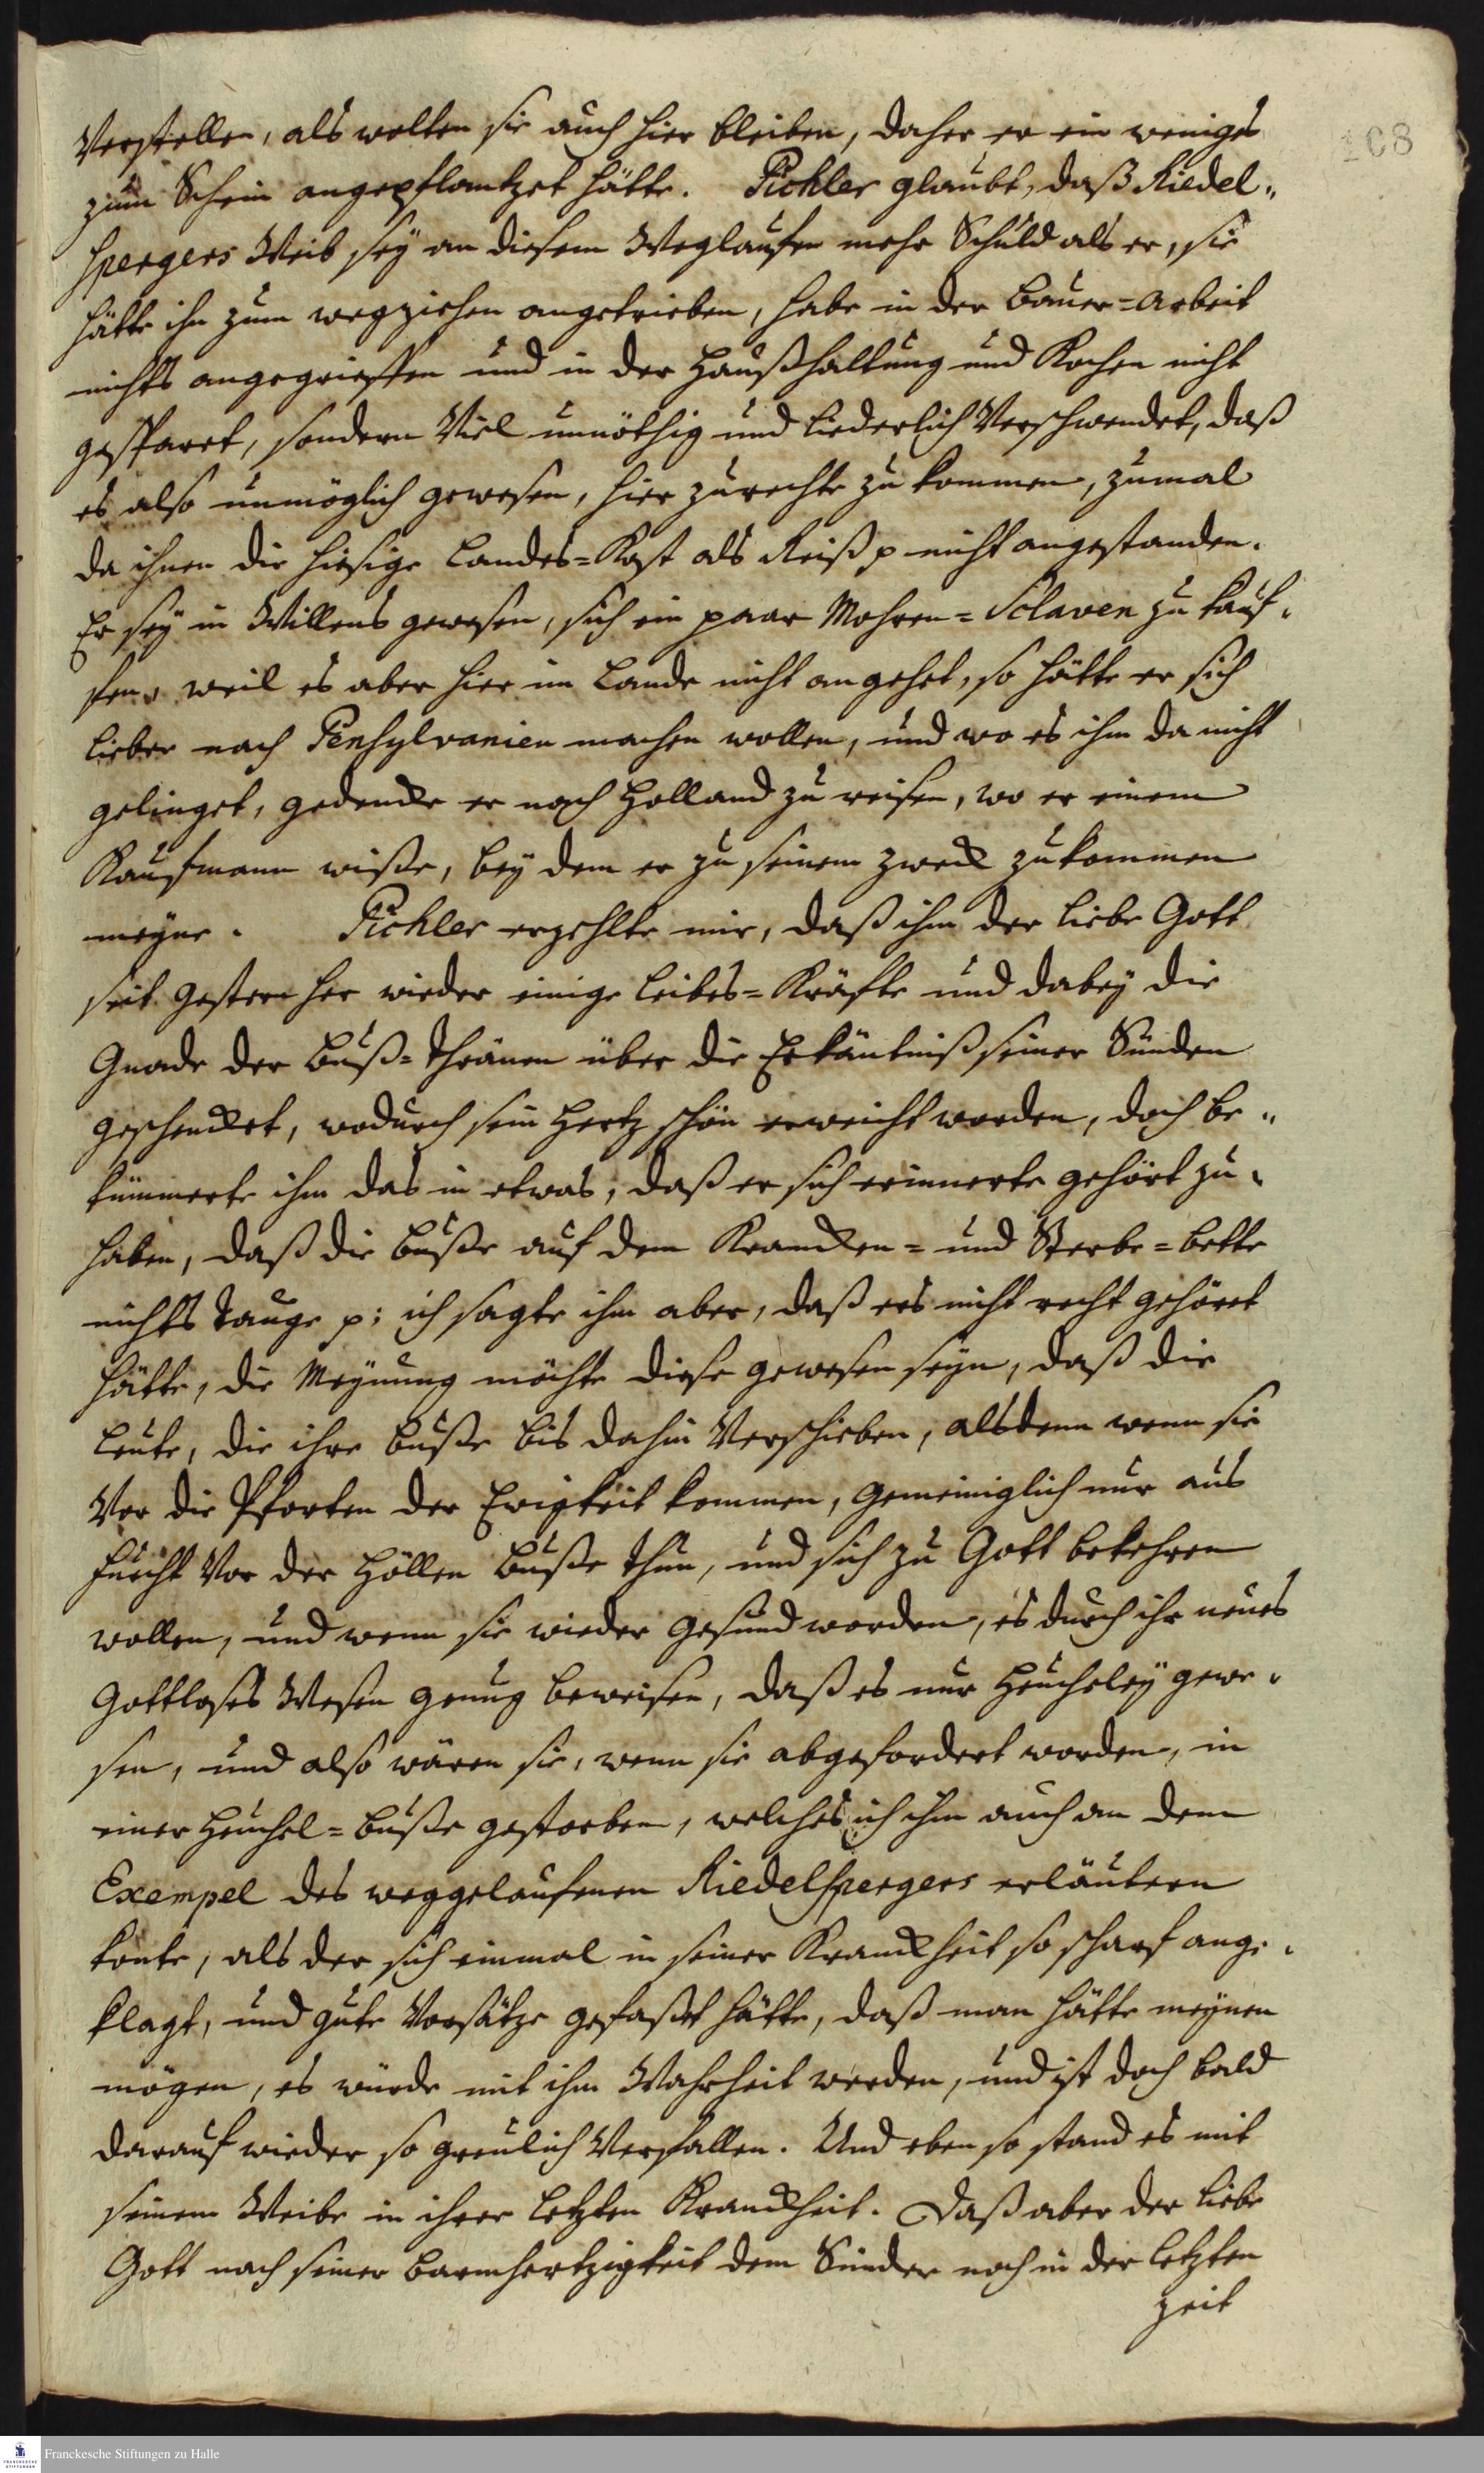 108
Verstellen, als wolten sie auch hier bleiben, daher er ein weniges
zum Schein angepflantzet hätte. Pichler glaubt, daß Riedel„
spergers Weib sey an diesem Weglaufen mehr Schuld als er, sie
hätte ihn zum wegziehen angetrieben, habe in der Bauer=Arbeit
nichts angegrieffen und in der Haußhaltung und Kochen nicht
gesparet, sondern Viel unnöthig und liederlich Verschwendet, daß
es also unmöglich gewesen, hier zurechte zu kommen, zumal
da ihnen die hiesige Landes=Kost als Reiß p nicht angestanden.
Er sey in Willens gewesen, sich ein paar Mohren=Sclaven zu kauf„
fen, weil es aber hier im Lande nicht angehet, so hätte er sich
lieber nach Pensylvanien machen wollen, und wo es ihm da nicht
gelinget, gedencke er nach Holland zu reisen, wo er einem
Kaufmann wiße, bey dem er zu seinem Zweck zukommen
meyne. Pichler erzehlte mir, daß ihm der liebe Gott
seit gestern her wieder einige Leibes=Kräfte und dabey die
Gnade der Buß=Thränen über die Erkäntniß seiner Sünden
geschencket, wodurch sein Hertz schön erweicht worden, doch be„
kümmerte ihm das in etwas, daß er sich erinnerte gehört zu„
haben, daß die Buße auf dem Krancken= und Sterbe=bette
nichts tauge p; ich sagte ihm aber, daß ers nicht recht gehöret
hätte, die Meynung möchte diese gewesen seyn, daß die
Leute, die ihre Buße bis dahin Verschieben, alsdenn wenn sie
Vor die Pforten der Ewigkeit kommen, gemeiniglich nur aus
Furcht Vor der Höllen Buße thun, und sich zu Gott bekehren
wollen, und wenn sie wieder gesund worden, es durch ihr neues
Gottloses Wesen genug beweisen, daß es nur Heucheley gewe„
sen, und also wären sie, wenn sie abgefordert worden, in
einer Heuchel=Buße gestorben, welches ich ihm auch an dem
Exempel des weggelaufenen Riedelspergers erläutern
konte, als der sich einmal in seiner Kranckheit so scharf ange„
klagt, und gute Vorsätze gefaßt hätte, daß man hätte meynen
mögen, es würde mit ihm Wahrheit werden, und ist doch bald
darauf wieder so greulich Verfallen. Und eben so stand es mit
seinem Weibe in ihrer letzten Kranckheit. Daß aber der liebe
Gott nach seiner Barmhertzigkeit dem Sünder noch in der letzten
Zeit
Franckesche Stiftungen zu Halle